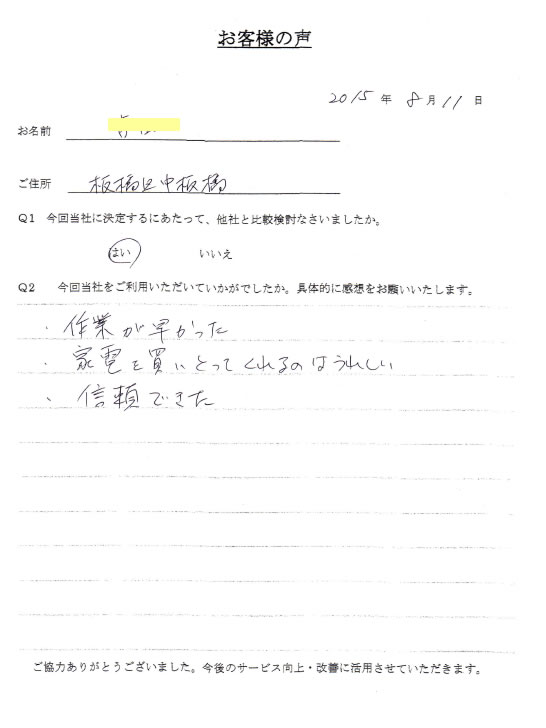 お客様の声
2015 年 8 月 11 日
お名前
ご住所 板橋区中板橋
Q1 今回当社に決定するにあたって、他社と比較検討なさいましたか。
はい いいえ
Q2 今回当社をご利用いただいていかがでしたか。具体的に感想をお願いいたします。
・作業が早かった
・家電を買いとってくれるのはうれしい
・信頼できた
ご協力ありがとうございました。今後のサービス向上・改善に活用させていただきます。